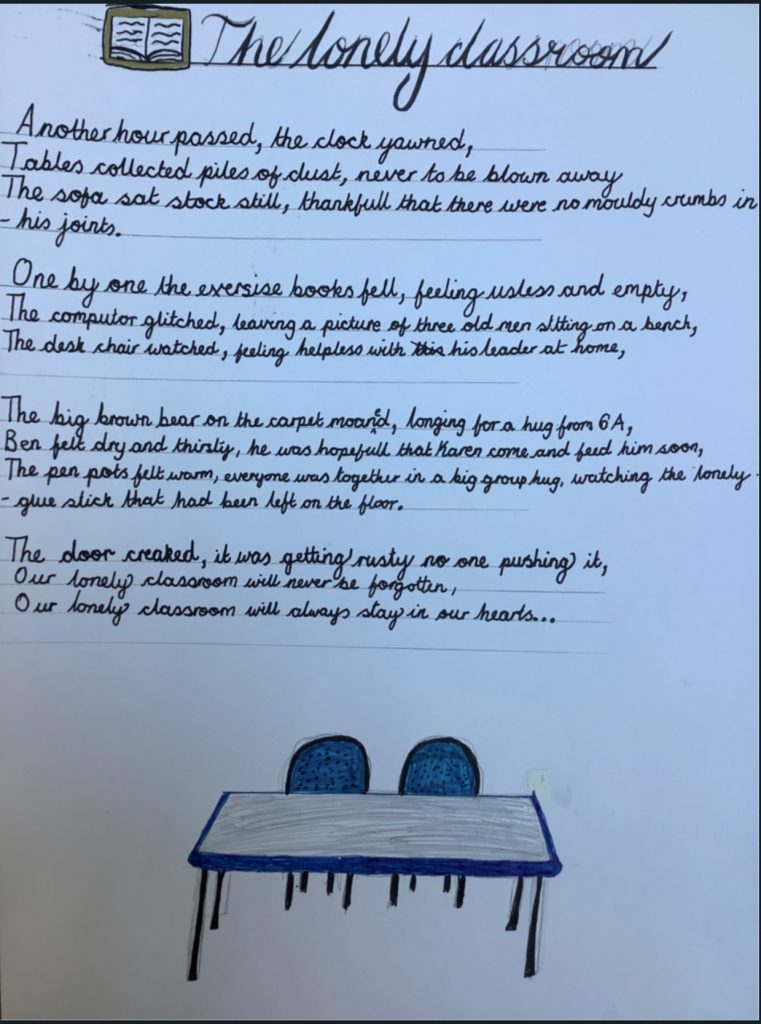 The lonely classroom
Another hour passed, the clock yawned,
Tables collected piles of dust, never to be blown away
The sofa sat stock still, thankfull that there were no mouldy crumbs in
- his joints.
One by one the exersise books fell, feeling usless and empty,
The computor glitched, leaving a picture of three old men sitting on a bench,
The desk chair watched, feeling helpless with this his leader at home,
The big brown bear on the carpet moaned, longing for a hug from 6A,
Ben felt dry and thirsty, he was hopefull that Karen come and feed him soon,
The pen pots felt warm, everyone was together in a big group hug, watching the lonely -
- glue stick that had been left on the floor.
The door creaked, it was getting rusty no one pushing it,
Our lonely classroom will never be forgotten,
Our lonely classroom will always stay in our hearts...